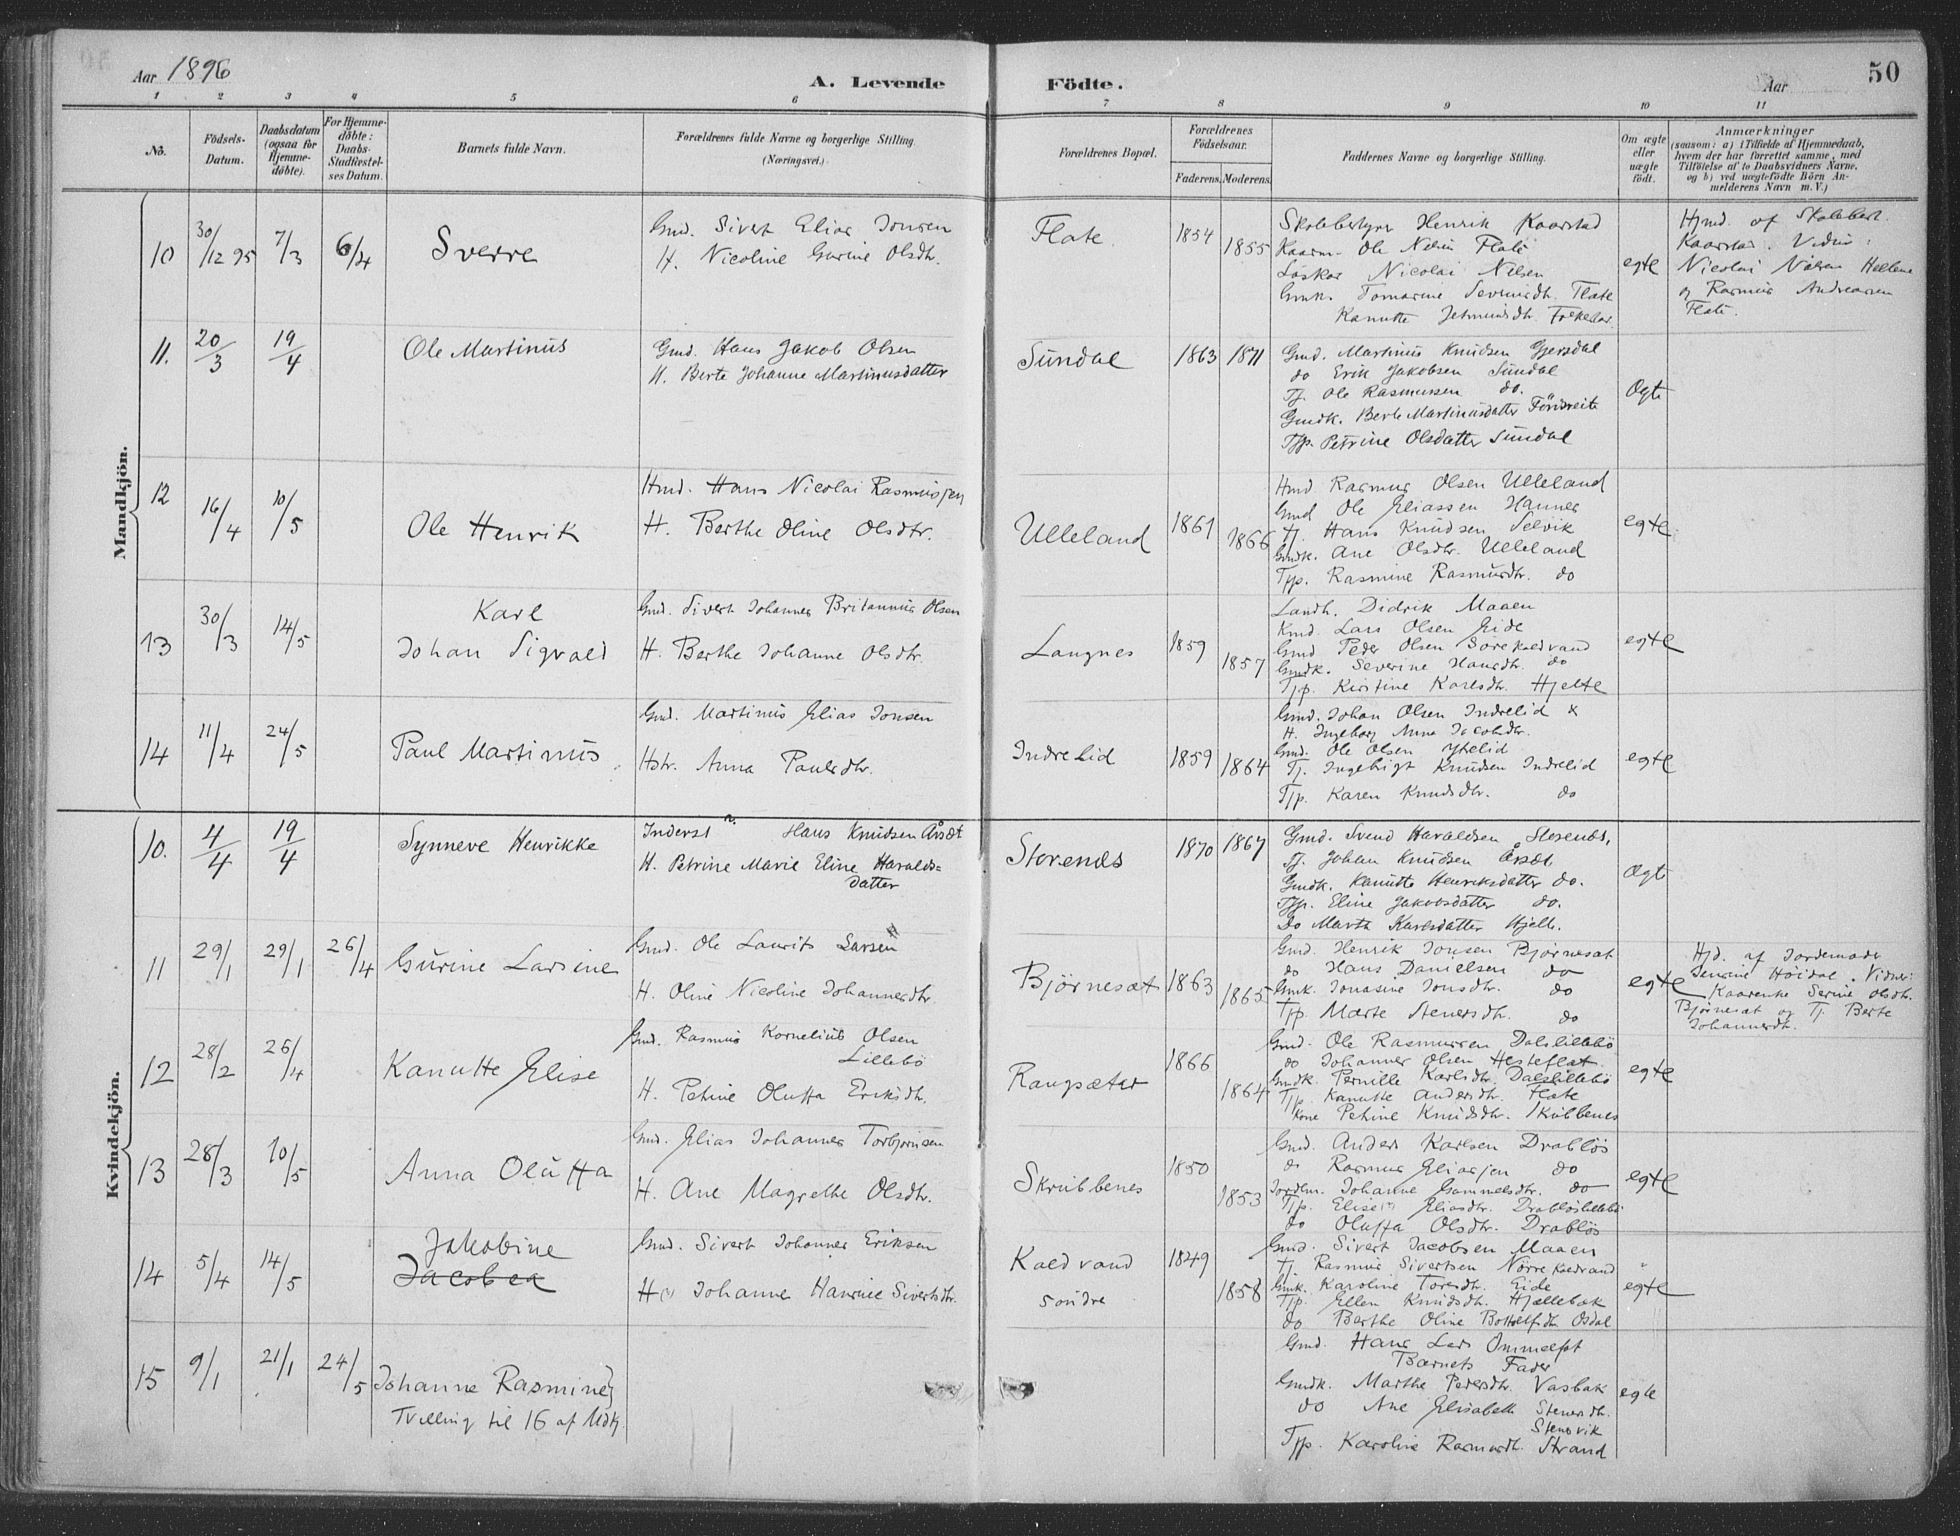 Aar 1896
A. Levende
Födte.
Aar
50
1 2 3 4 5 6 7 8 9 10 11
No.
Födsels-
Datum.
Daabsdatum
(ogsaa for
Hjemme-
døbte).
For Hjemme-
döbte:
Daabs-
Stadfæstel-
ses Datum.
Barnets fulde Navn.
Forældrenes fulde Navne og borgerlige Stilling.
(Næringsvei.)
Forældrenes Bopæl.
Forældrenes
Födselsaar.
Faderens.
Moderens.
Faddernes Navne og borgerlige Stilling.
Om ægte
eller
uægte
födt.
Anmærkninger
(saasom: a) i Tilfælde af Hjemmedaab,
hvem der har forrettet samme, med
Tilföielse af to Daabsvidners Navne,
og b) ved uægtefödte Börn An-
melderens Navn m. V.)
Mandkjön.
10 30/12 95 7/3 6/4 Sverre
Gmd. Sivert Elias Jonsen
H. Nicoline Gurine Olsdtr.
Flate 1854 1855
Skolebestyrer Henrik Kaarstad
Kaarm. Ole Nilsen Flate
Löskar Nicolai Nilsen
Gmk. Tomarine Flate
Kanutte
egte
Hjmd. af Skolebest.
Kaarstad. Vidner:
Nicolai Nilsen
og Rasmus Andreassen
Flate.
11. 20/3 19/4 Ole Martinus
Gmd. Hans Jakob Olsen
H. Berte Johanne Martinusdatter
Sundal 1863 1871
Gmd. Martinus Knudsen Gjersdal
do Erik Jakobsen Sundal
Tj. Ole Rasmussen do.
Gmdk. Berte Martinusdatter
Tjp. Petrine Olsdatter Sundal
Ægte
12 16/4 10/5 Ole Henrik
Hmd. Hans Nicolai Rasmussen
H. Berthe Oline Olsdtr.
Ulleland 1861 1866
Hmd. Rasmus Olsen Ulleland
Gmd Ole Eliassen Hannes
Tj. Hans Knudsen Selvik
Gmdk. Ane Olsdtr. Ulleland
Tjp. Rasmine Rasmusdtr. do
egte
13 30/3 14/5 Karl
Johan Sigvald
Gmd. Sivert Johannes Britannus Olsen
H. Berthe Johanne Olsdtr.
Langnes 1859 1857
Landh. Didrik Maaen
Kmd. Lars Olsen Eide
Gmd Peder Olsen Sörekaldvand
Gmdk. Severine Hansdtr. do
Tjp. Kirstine Karlsdtr. Hjelle
egte
14 11/4 24/5 Paul Martinus
Gmd. Martinus Elias Jonsen
Hstr. Anna Paulsdtr.
Indrelid 1859 1864
Gmd. Johan Olsen Indrelid &
H. Ingeborg Anna Jacobdtr.
Gmd. Ole Olsen Ytrelid
Tj. Ingebrigt Knudsen Indrelid
Tjp. Karen Knudsdtr. do
egte
Kvindekjön.
10. 4/4 19/4 Synneve Henrikke
Inderst Hans Knudsen Årsæt
H. Petrine Marie Eline Haralds=
datter
Storenes 1870 1867
Gmd. Svend Haraldsen Storenes,
Tj. Johan Knudsen Årsæt,
Gmdk. Kanutte Henriksdatter do.
Tjp. Eline Jakobsdatter do.
Do Marta Karlsdatter Hjelle.
Ægte
11 29/1 29/1 26/4 Gurine Larsine
Gmd. Ole Laurits Larsen
H. Oline Nicoline Johannesdtr.
Bjørnesæt 1863 1865
Gmd. Henrik Jonsen Bjørnesæt
do Hans Danielsen do
Gmk. Jonasine Jonsdtr. do
Tjp. Marte Stenersdtr. do
egte
Hjd. af Jordemoder
Høidal. Vidner:
Serine Olsdtr.
Bjørnesæt og Tj. Berte
Johannesdtr.
12 28/2 26/4 Kanutte Elise
Gmd. Rasmus Kornelius Olsen
Lillebö
H. Petrine Oluffa Eriksdtr.
Rangsæter 1866 1864
Gmd. Ole Rasmussen Dalslillebö
do Johannes Olsen Hesteflat
Gmdk. Pernille Karlsdtr. Dalslillebö
Tjp. Kanutte Andersdtr. Flate
Kone Petrine Knudsdtr. Skrubbenes
egte
13 28/3 10/5 Anna Oluffa
Gmd. Elias Johannes Torbjørnsen
H. Ane Magrethe Olsdtr.
Skrubbenes 1850 1853
Gmd. Anders Karlsen Drabløs
do Rasmus Eliassen do
Jordm. Johanne Gammelsdtr. do
Tjp. Elise Eliasdtr. Drabløslillebö
do Oluffa Olsdtr. Drabløs
egte
14 5/4 14/5 Jakobine
Jacobea
Gmd. Sivert Johannes Eriksen
H Johanne Hansine Sivertsdtr.
Kaldvand
söndre 1849 1858
Gmd. Sivert Jacobsen Maaen
Tj. Rasmus Sivertsen Nörre Kaldvand
Gmk. Karoline Toresdtr. Eide
Tjp. Ellen Knudsdtr. Hjellebak
do Berthe Oline Osdal
egte
15 9/1 21/1 24/5 Johanne Rasmine}
Tvilling til 16 af Mdkj.
Gmd. Hans Lars
Barnets Fader
Gmdk. Marthe Pedersdtr. Vasbak
do Ane Elisabeth Stenersdtr.
Stensvik
Tjp. Karoline Rasmusdtr. Strand
egte